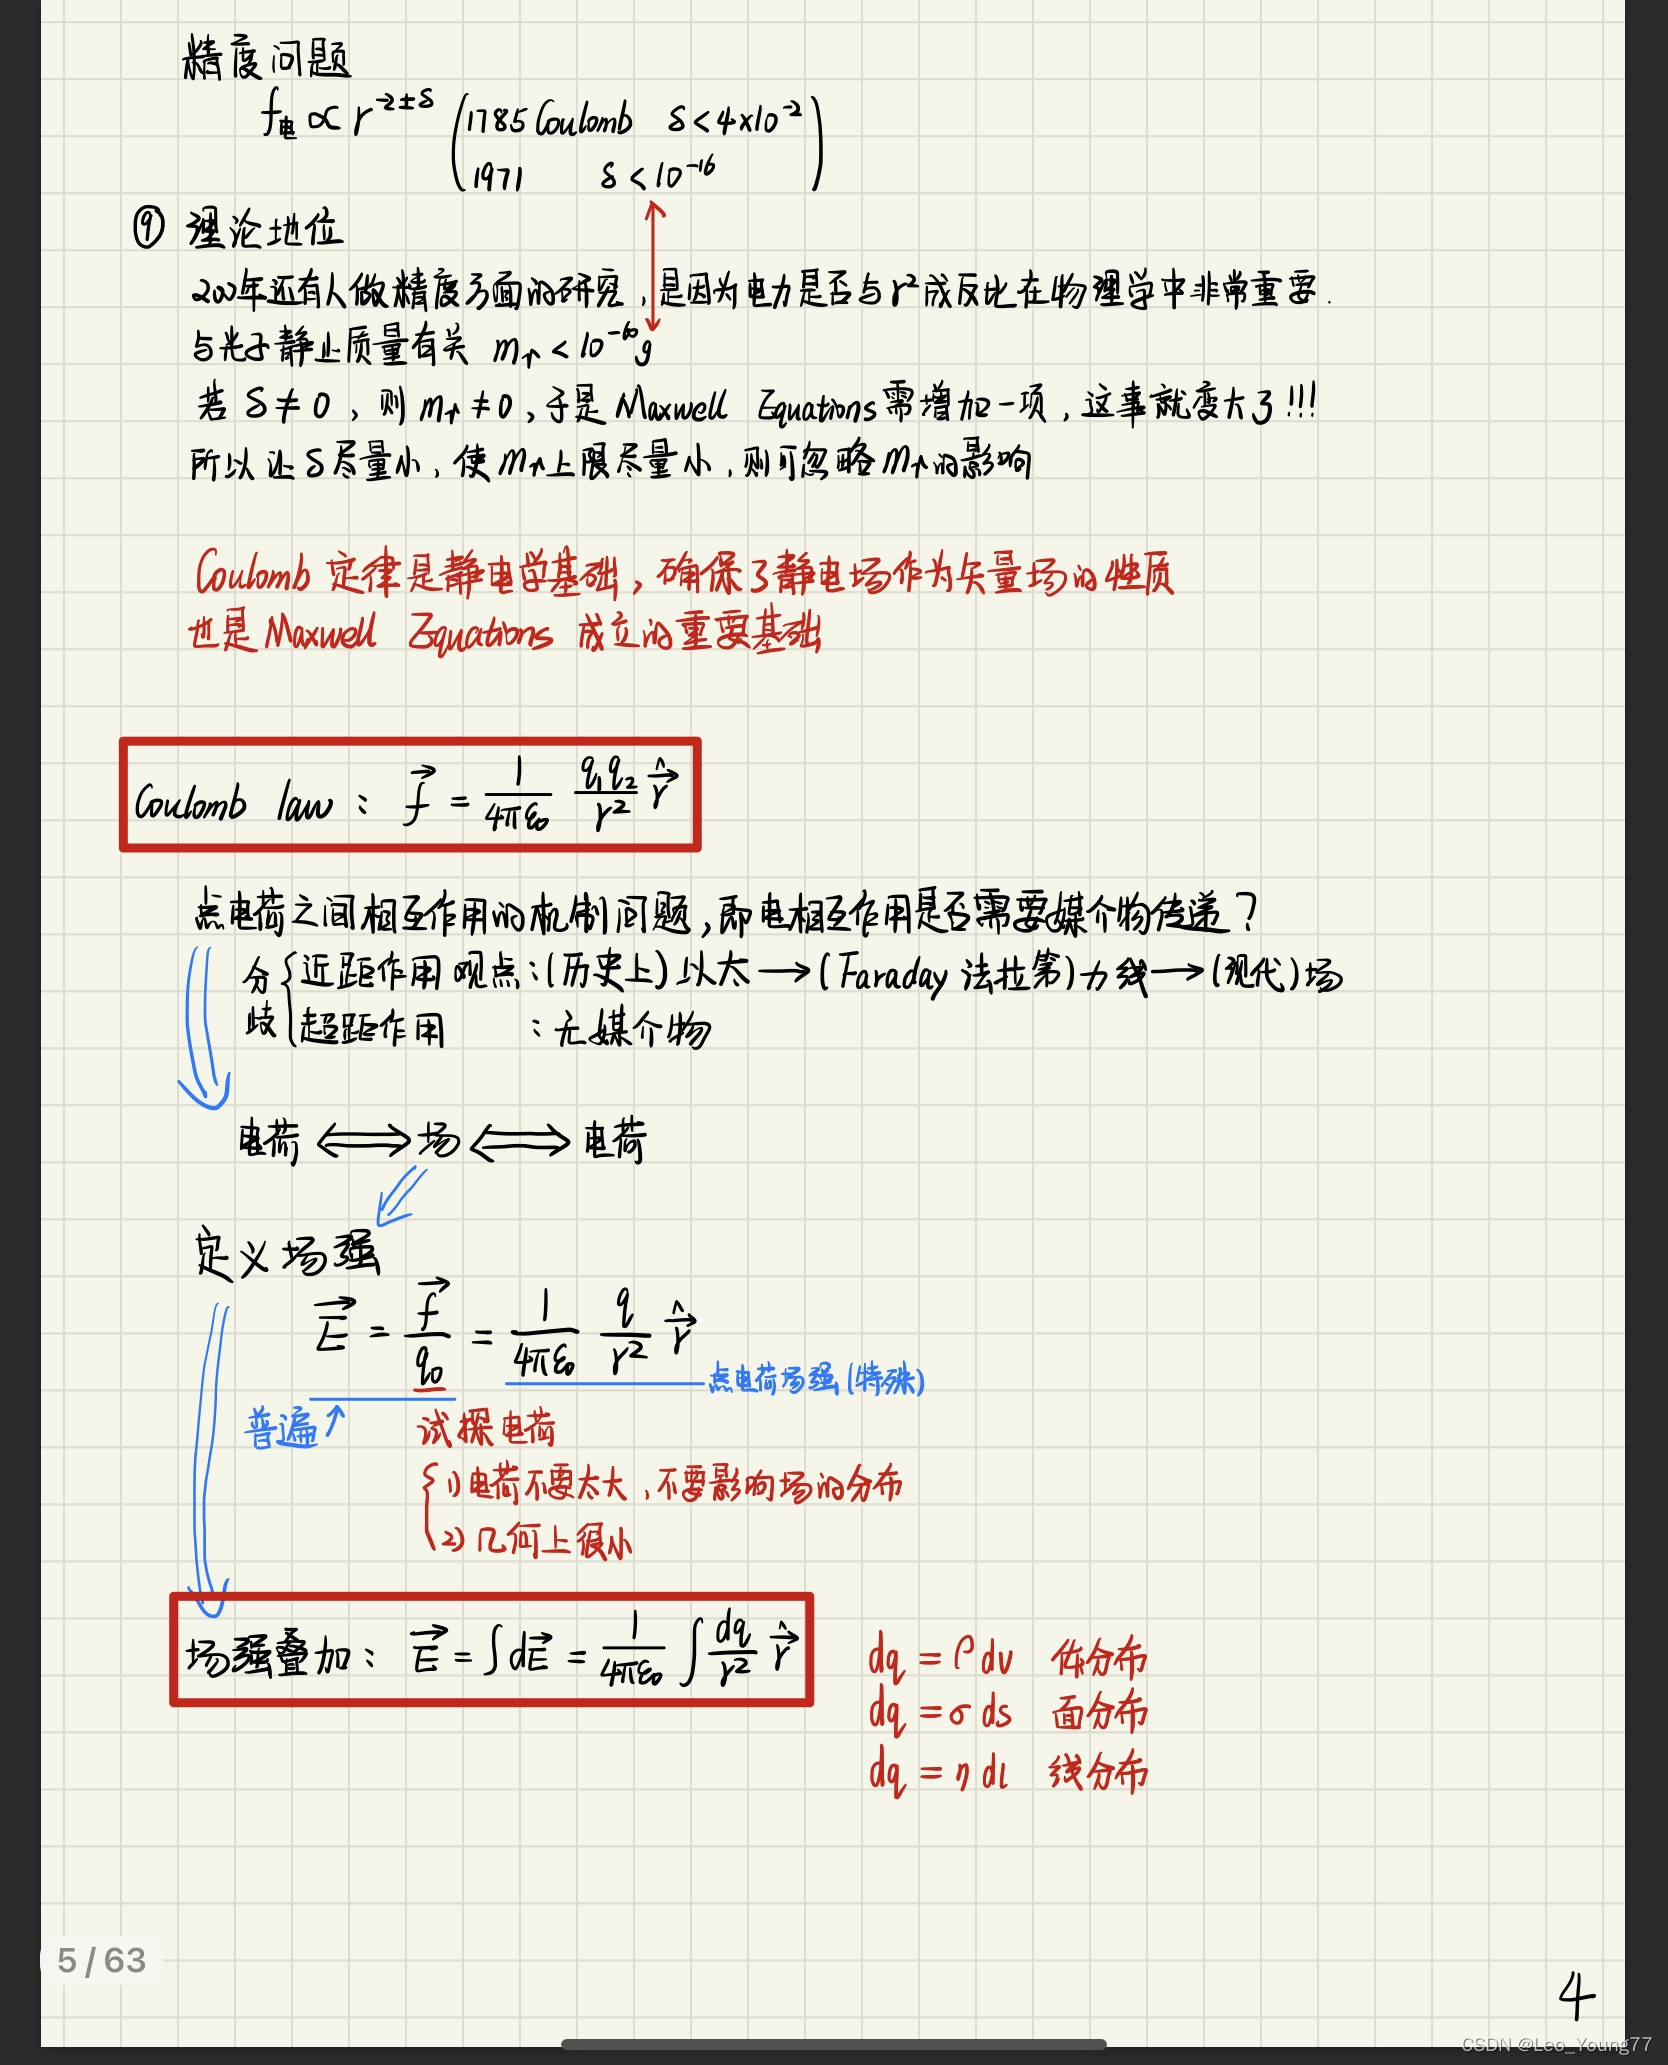 精度问题
f电 ∝ r^(-2±δ) (1785 Coulomb δ < 4×10^-2
1971 δ < 10^-16)
⑨ 理论地位
200年还有人做精度方面的研究，是因为电力是否与r²成反比在物理学中非常重要.
与光子静止质量有关 mγ < 10^-60 g
若 δ ≠ 0，则 mγ ≠ 0，于是 Maxwell Equations 需增加一项，这事就变大了!!!
所以让 δ 尽量小，使 mγ 上限尽量小，则可忽略 mγ 的影响
Coulomb 定律是静电学基础，确保了静电场作为矢量场的性质
也是 Maxwell Equations 成立的重要基础
Coulomb law： f⃗ = 1/(4πε₀) q₁q₂/r² r⃗̂
点电荷之间相互作用的机制问题，即电相互作用是否需要媒介物传递？
分歧 { 近距作用 观点：(历史上) 以太 → (Faraday 法拉第) 力线 → (现代) 场
超距作用 ：无媒介物
电荷 ⟺ 场 ⟺ 电荷
定义场强
E⃗ = f⃗/q₀ = 1/(4πε₀) q/r² r⃗̂
点电荷场强 (特殊)
普遍↑ 试探电荷
1) 电荷不要太大，不要影响场的分布
2) 几何上很小
场强叠加： E⃗ = ∫dE⃗ = 1/(4πε₀) ∫ dq/r² r⃗̂
dq = ρ dv 体分布
dq = σ ds 面分布
dq = η dl 线分布
5 / 63
4
CSDN @Leo_Young77